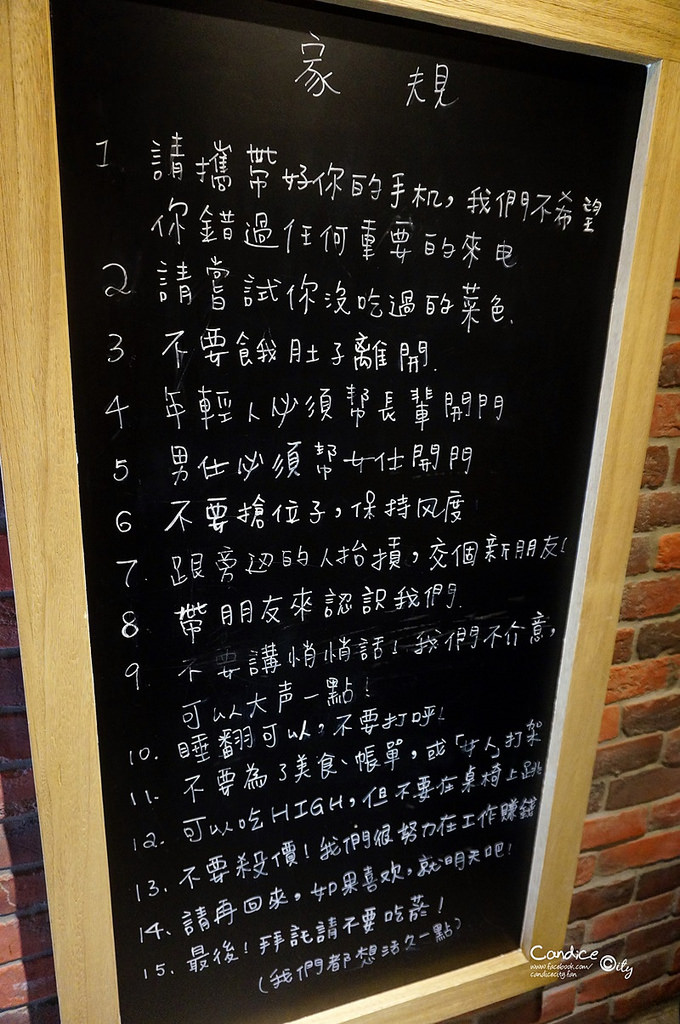 家 規
1 請攜帶好你的手机，我們不希望
你錯過任何重要的來电
2 請嘗試你沒吃過的菜色.
3 不要餓肚子離開.
4 年輕人必須幫長輩開門
5 男仕必須幫女仕開門
6 不要搶位子，保持风度
7. 跟旁边的人抬摃，交個新朋友！
8 帶朋友來認識我們.
9. 不要講悄悄話！我們不介意，
可以大声一點！
10. 睡翻可以，不要打呼！
11. 不要為了美食、帳單，或「女人」打架
12. 可以吃HIGH，但不要在桌椅上跳
13. 不要殺價！我們很努力在工作賺錢
14. 請再回來，如果喜欢，就明天吧！
15. 最後！拜託請不要吃菸！
（我們都想活久一點）
Candice City
www.facebook.com/
candicecity.fan